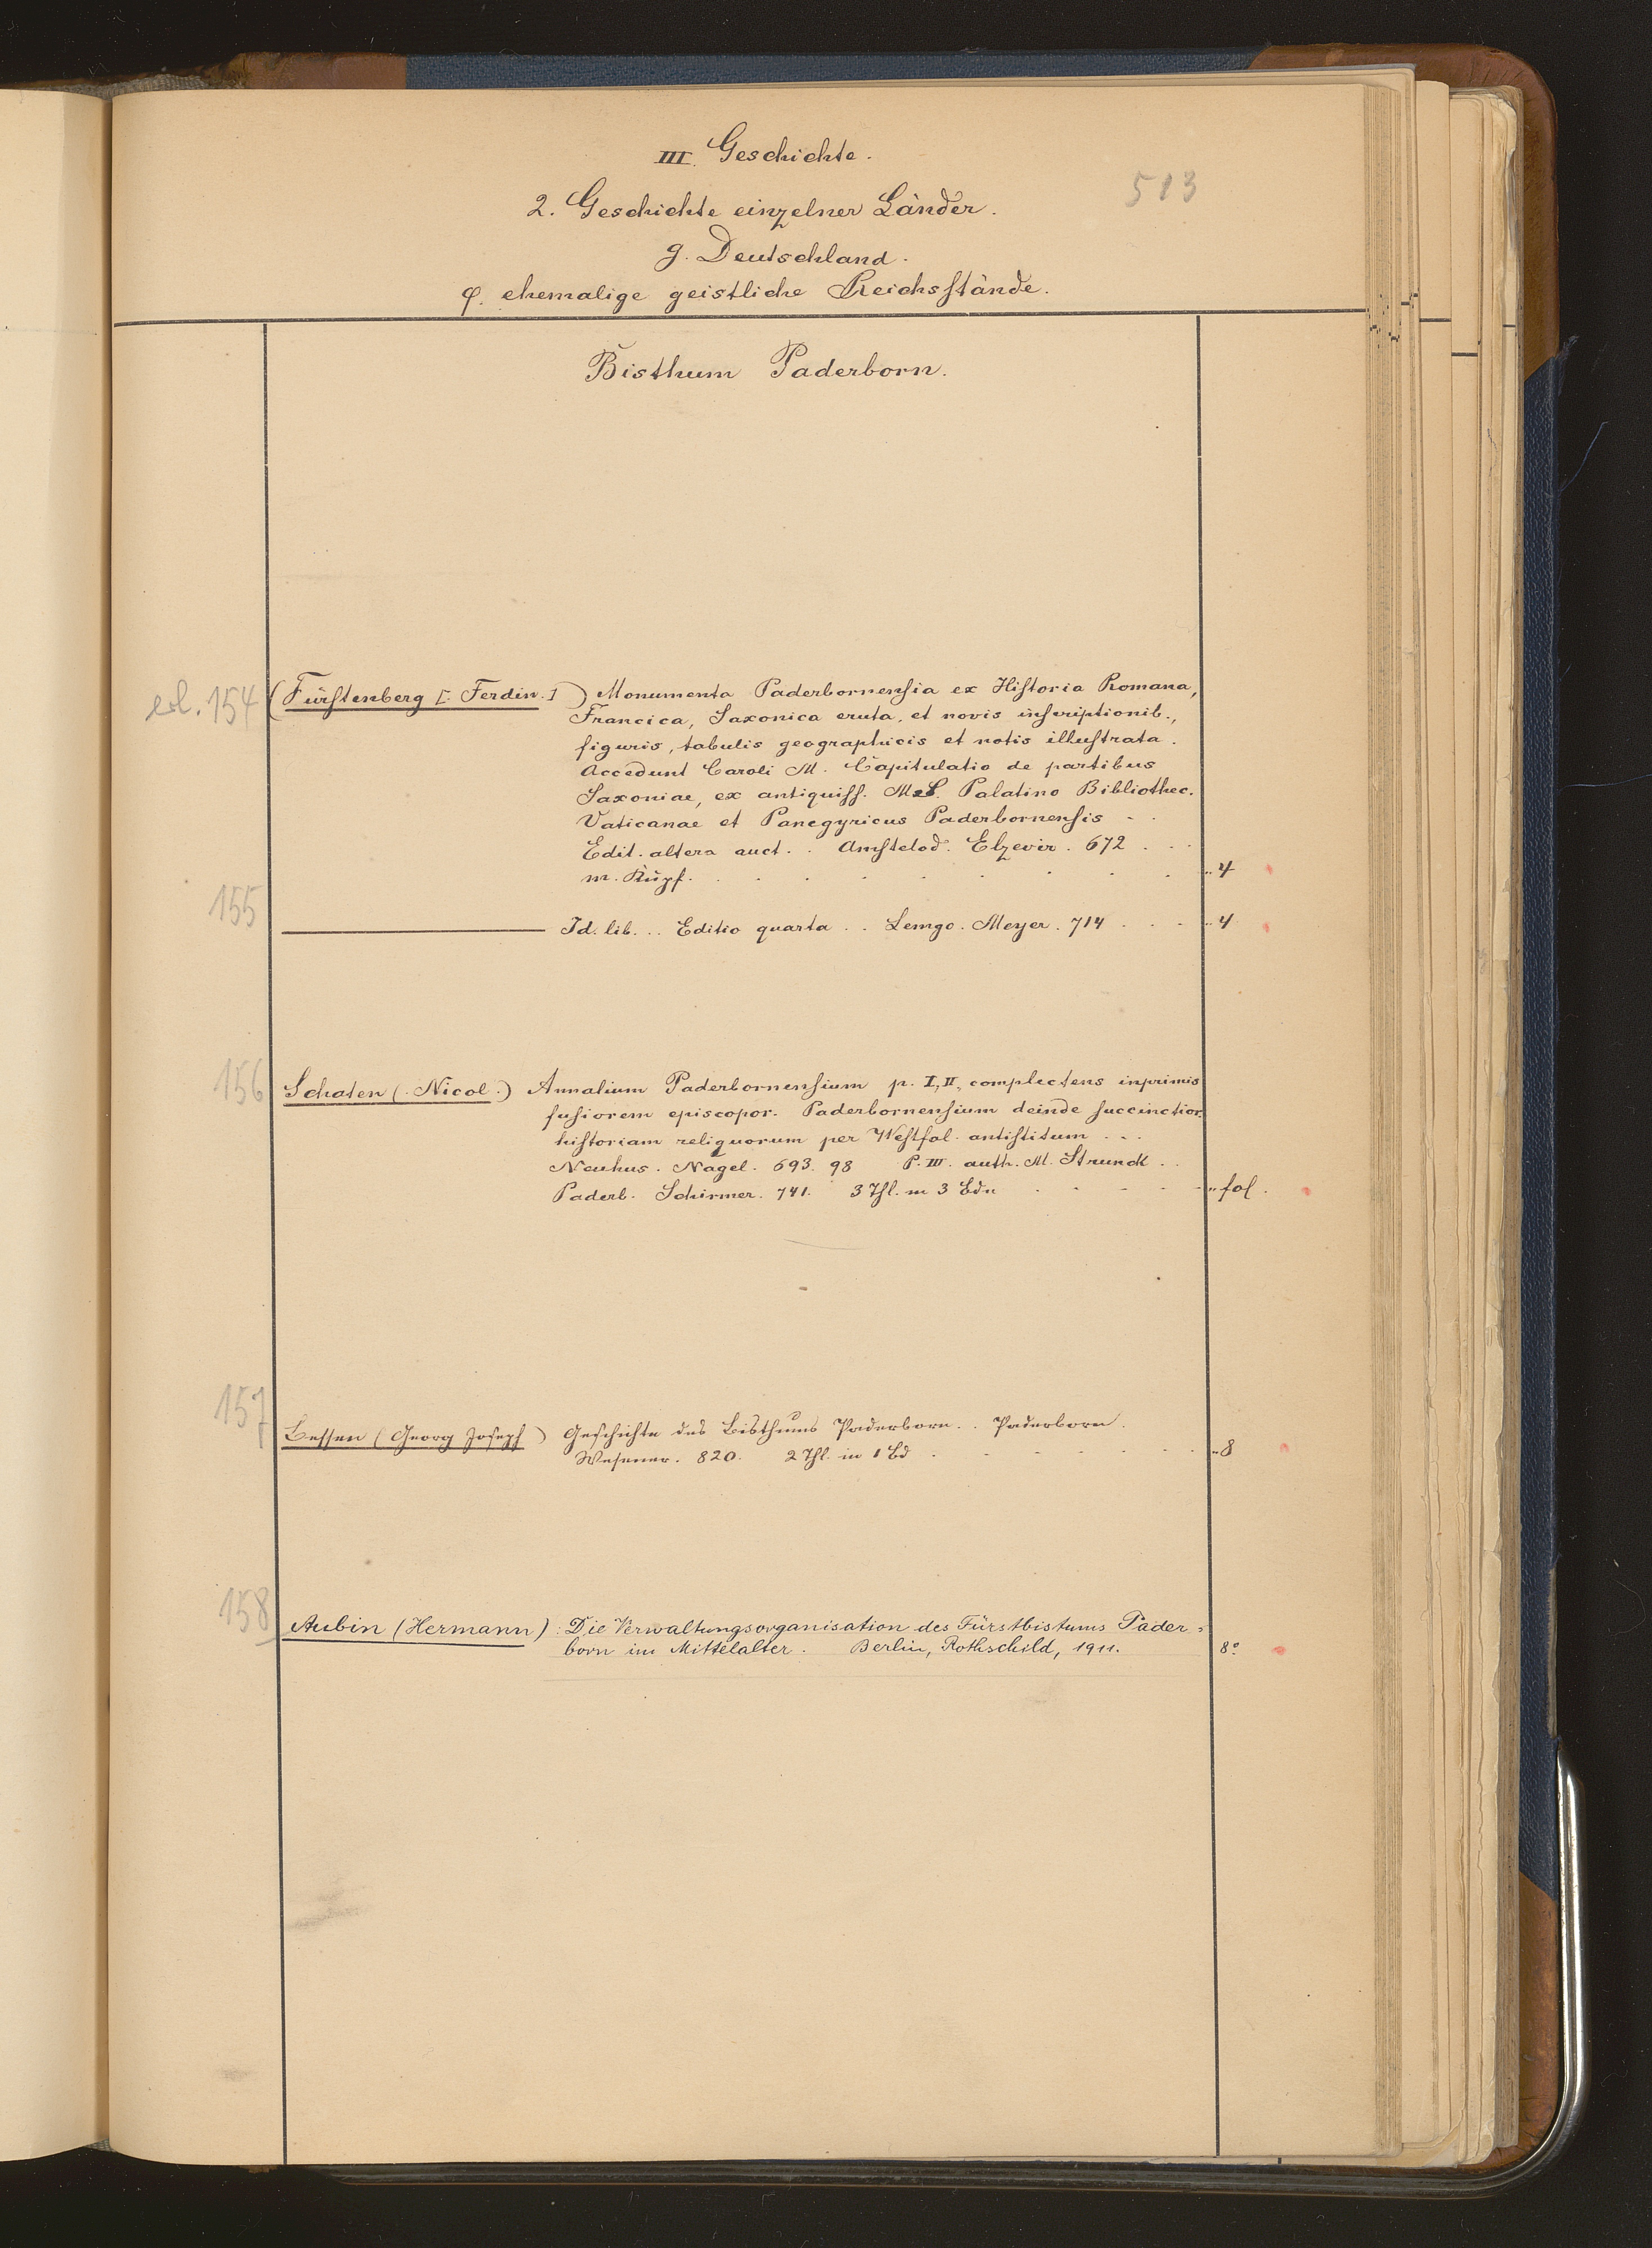 III. Geschichte.
513
2. Geschichte einzelner Länder.
g. Deutschland.
φ. ehemalige geistliche Reichsstände.
Bisthum Paderborn.
154 (Fürstenberg [. Ferdin.]) Monumenta Paderbornensia ex Historia Romana,
Francica, Saxonica eruta, et novis inscriptionib.,
figuris, tabulis geographicis et notis illustrata.
Accedunt Caroli M. Capitulatio de partibus
Saxoniae, ex antiquiss. Palatino Bibliothec.
Vaticanae et Panegyricus Paderbornensis - .
Edit. altera auct. . Amstelod. Elzevir. 672 . . .
m. Kupf. . . . . . . . . „ 4
155 Id. lib. .. Editio quarta .. Lemgo. Meyer. 714 . . . „ 4
156 Schaten (. Nicol.) Annalium Paderbornensium p. I, II, complectens inprimis
fusiorem episcopor. Paderbornensium deinde succinctior.
historiam reliquorum per Westfal. antistitum ...
Neuhus. Nagel. 693. 98 P. III. auth. M. Strunck ..
Paderb. Schirmer. 741. 3 Thl. in 3 Bdn . . . . . „ fol.
157 Bessen (Georg Joseph) Geschichte des Bisthums Paderborn .. Paderborn.
Wesener. 820. 2 Thl. in 1 Bd . . . . . . „ 8
158 Aubin (Hermann): Die Verwaltungsorganisation des Fürstbistums Pader=
born im Mittelalter. Berlin, Rothschild, 1911. 8°.